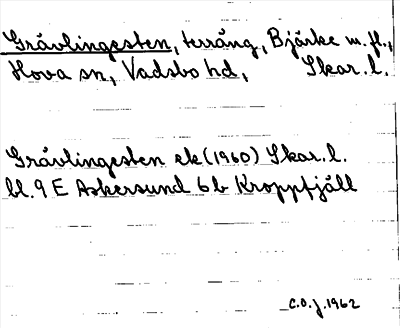 Grävlingesten, terräng, Bjärke m.fl.,
Hova sn, Vadsbo hd, Skar.l.
Grävlingesten ek (1960) Skar.l.
bl. 9 E Askersund 6 b Kroppfjäll
C.O.J. 1962